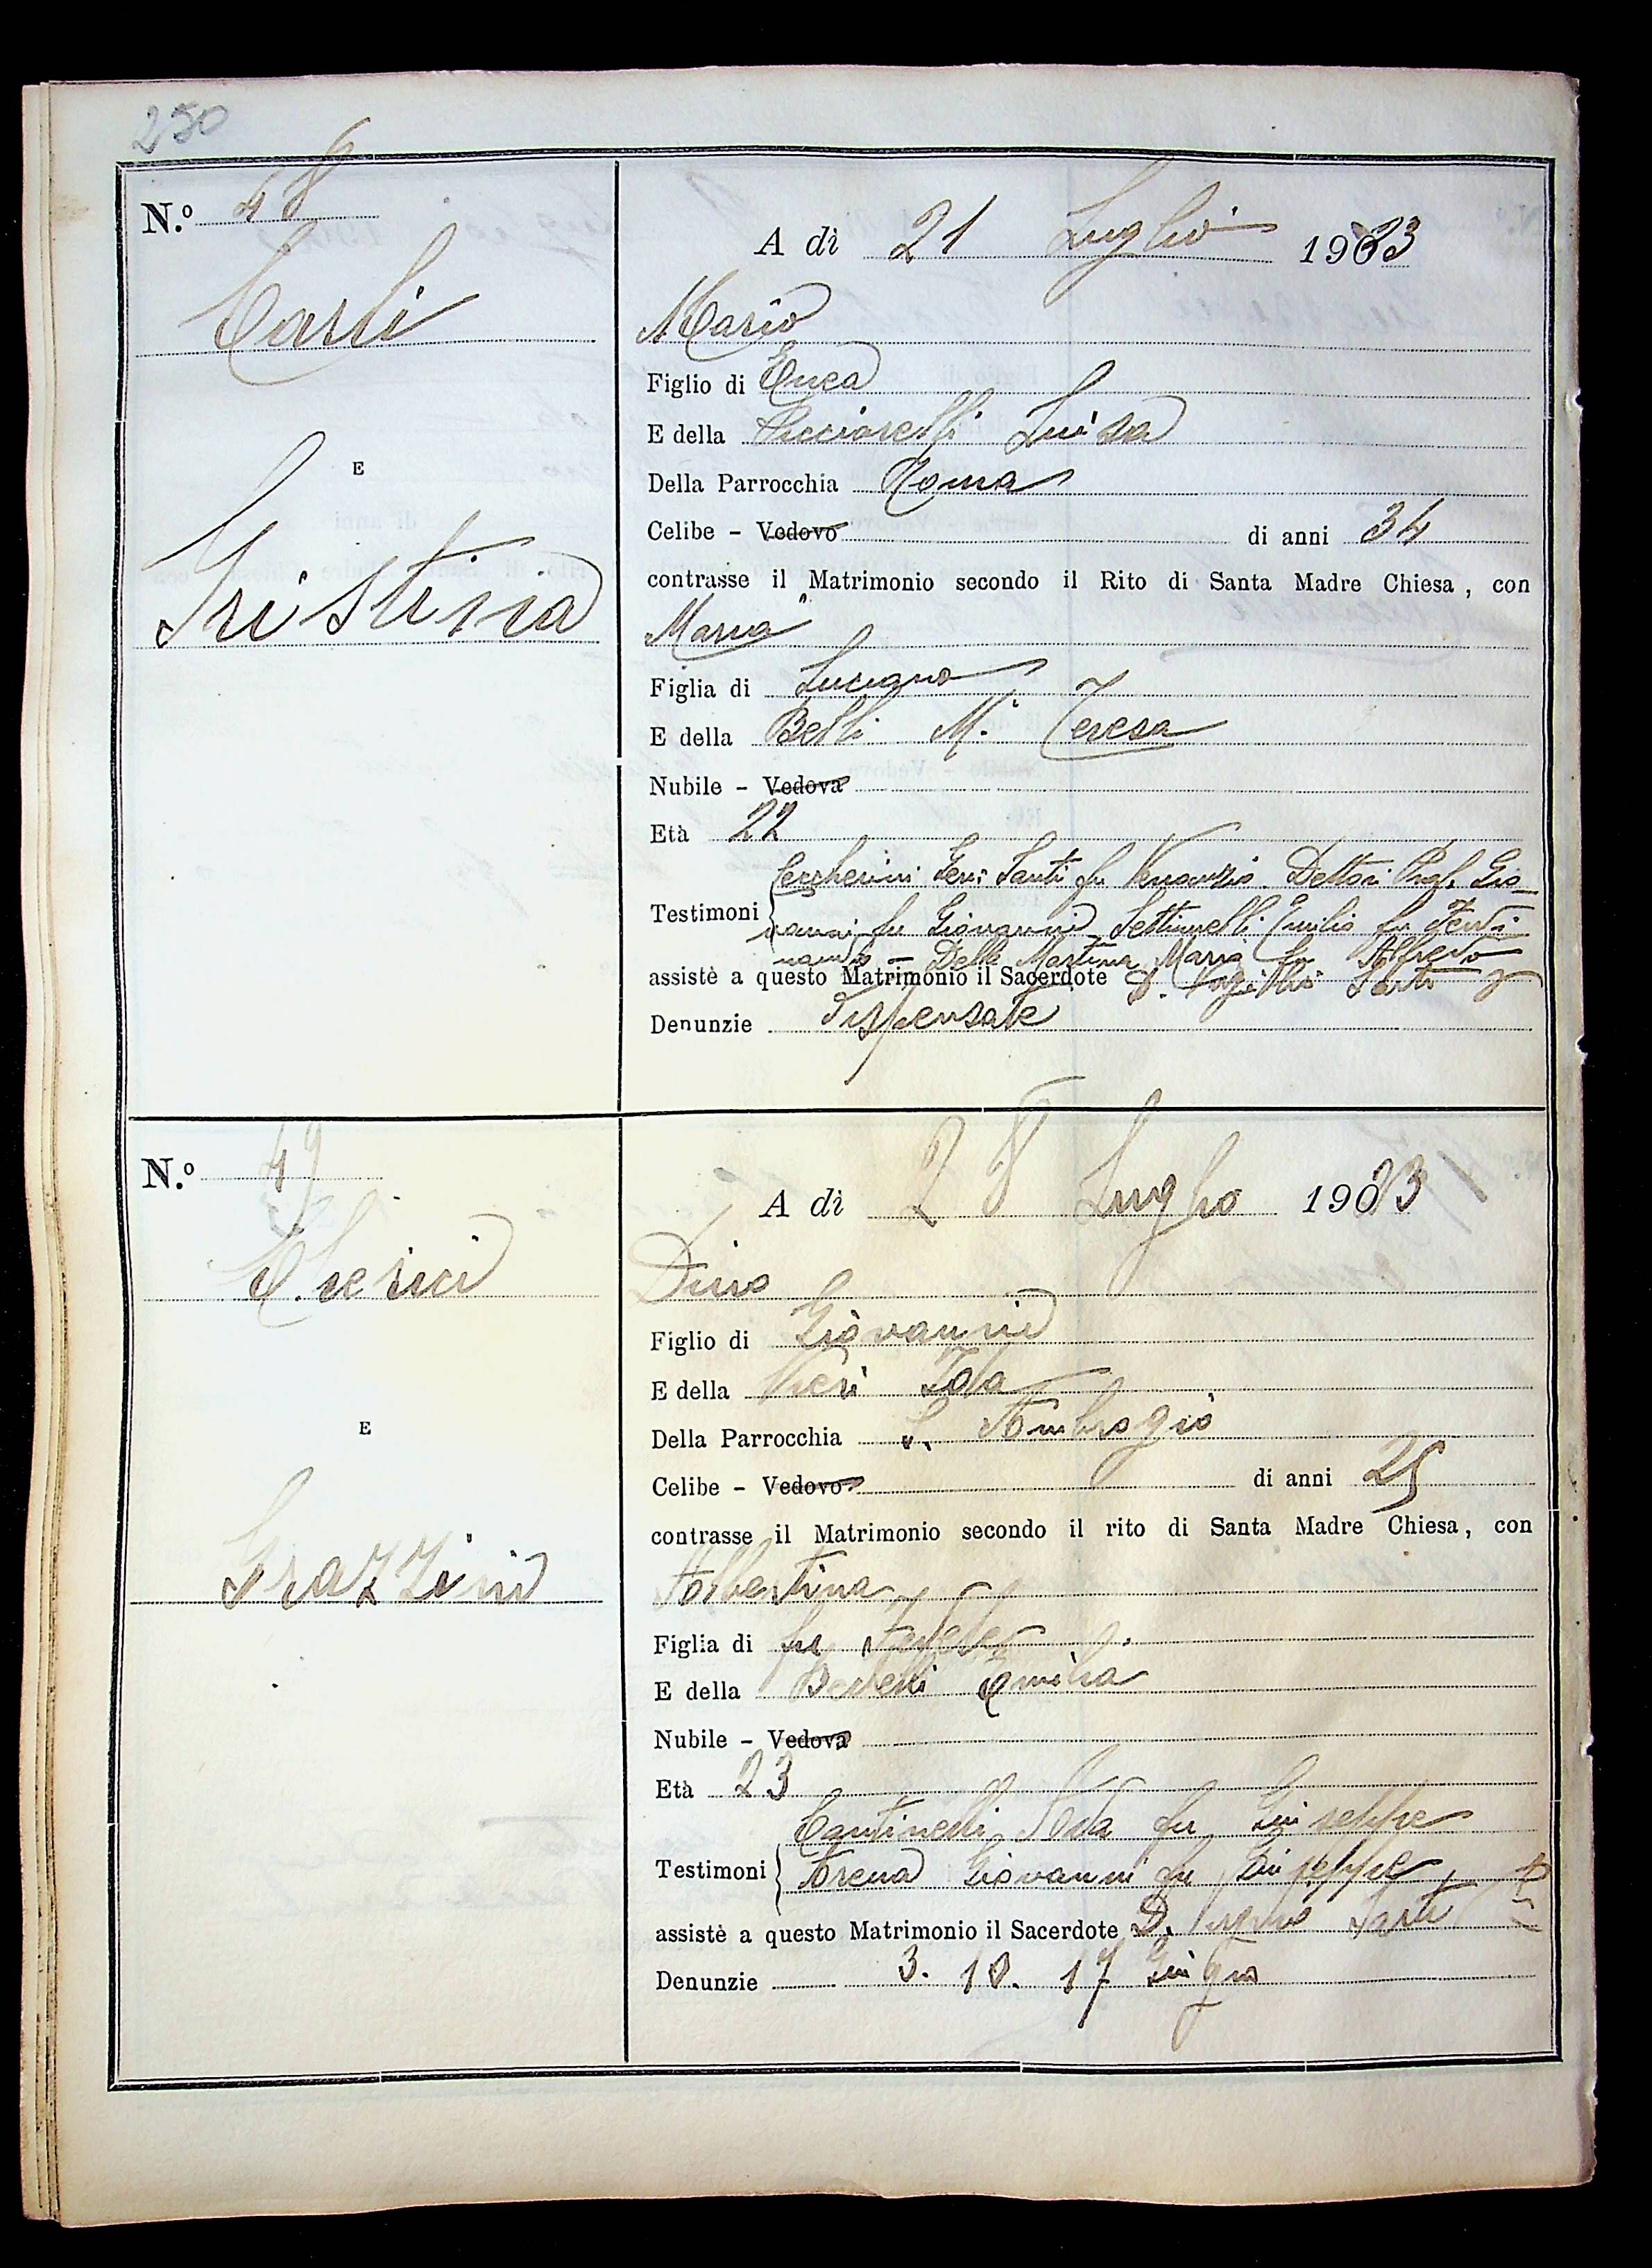 250
N.º 48
Carli
E
Tristina
A dì 21 Luglio 1923
Mario
Figlio di Enea
E della Ricciarelli Luisa
Della Parrocchia Roma
Celibe - Vedovo di anni 34
contrasse il Matrimonio secondo il Rito di Santa Madre Chiesa, con
Maria
Figlia di Luciano
E della Belli M. Teresa
Nubile - Vedova
Età 22
Ceccherini Santi fu Venanzio. Dettori Prof. Gio-
Testimoni vanni fu Giovanni Settimelli Emilio fu Ferdi-
nando - Della Martina Maria fu Alfredo
assistè a questo Matrimonio il Sacerdote D. Sarti
Denunzie Dispensate
N.º 49
Clerici
E
Grazzini
A dì 28 Luglio 1923
Dino
Figlio di Giovanni
E della Neri
Della Parrocchia S. Ambrogio
Celibe - Vedovo di anni 25
contrasse il Matrimonio secondo il rito di Santa Madre Chiesa, con
Albertina
Figlia di fu
E della Emilia
Nubile - Vedova
Età 23
Cantinelli fu Giuseppe
Testimoni Arena Giovanni fu Giuseppe
assistè a questo Matrimonio il Sacerdote D. Sarti
Denunzie 3. 10. 17 Giugno